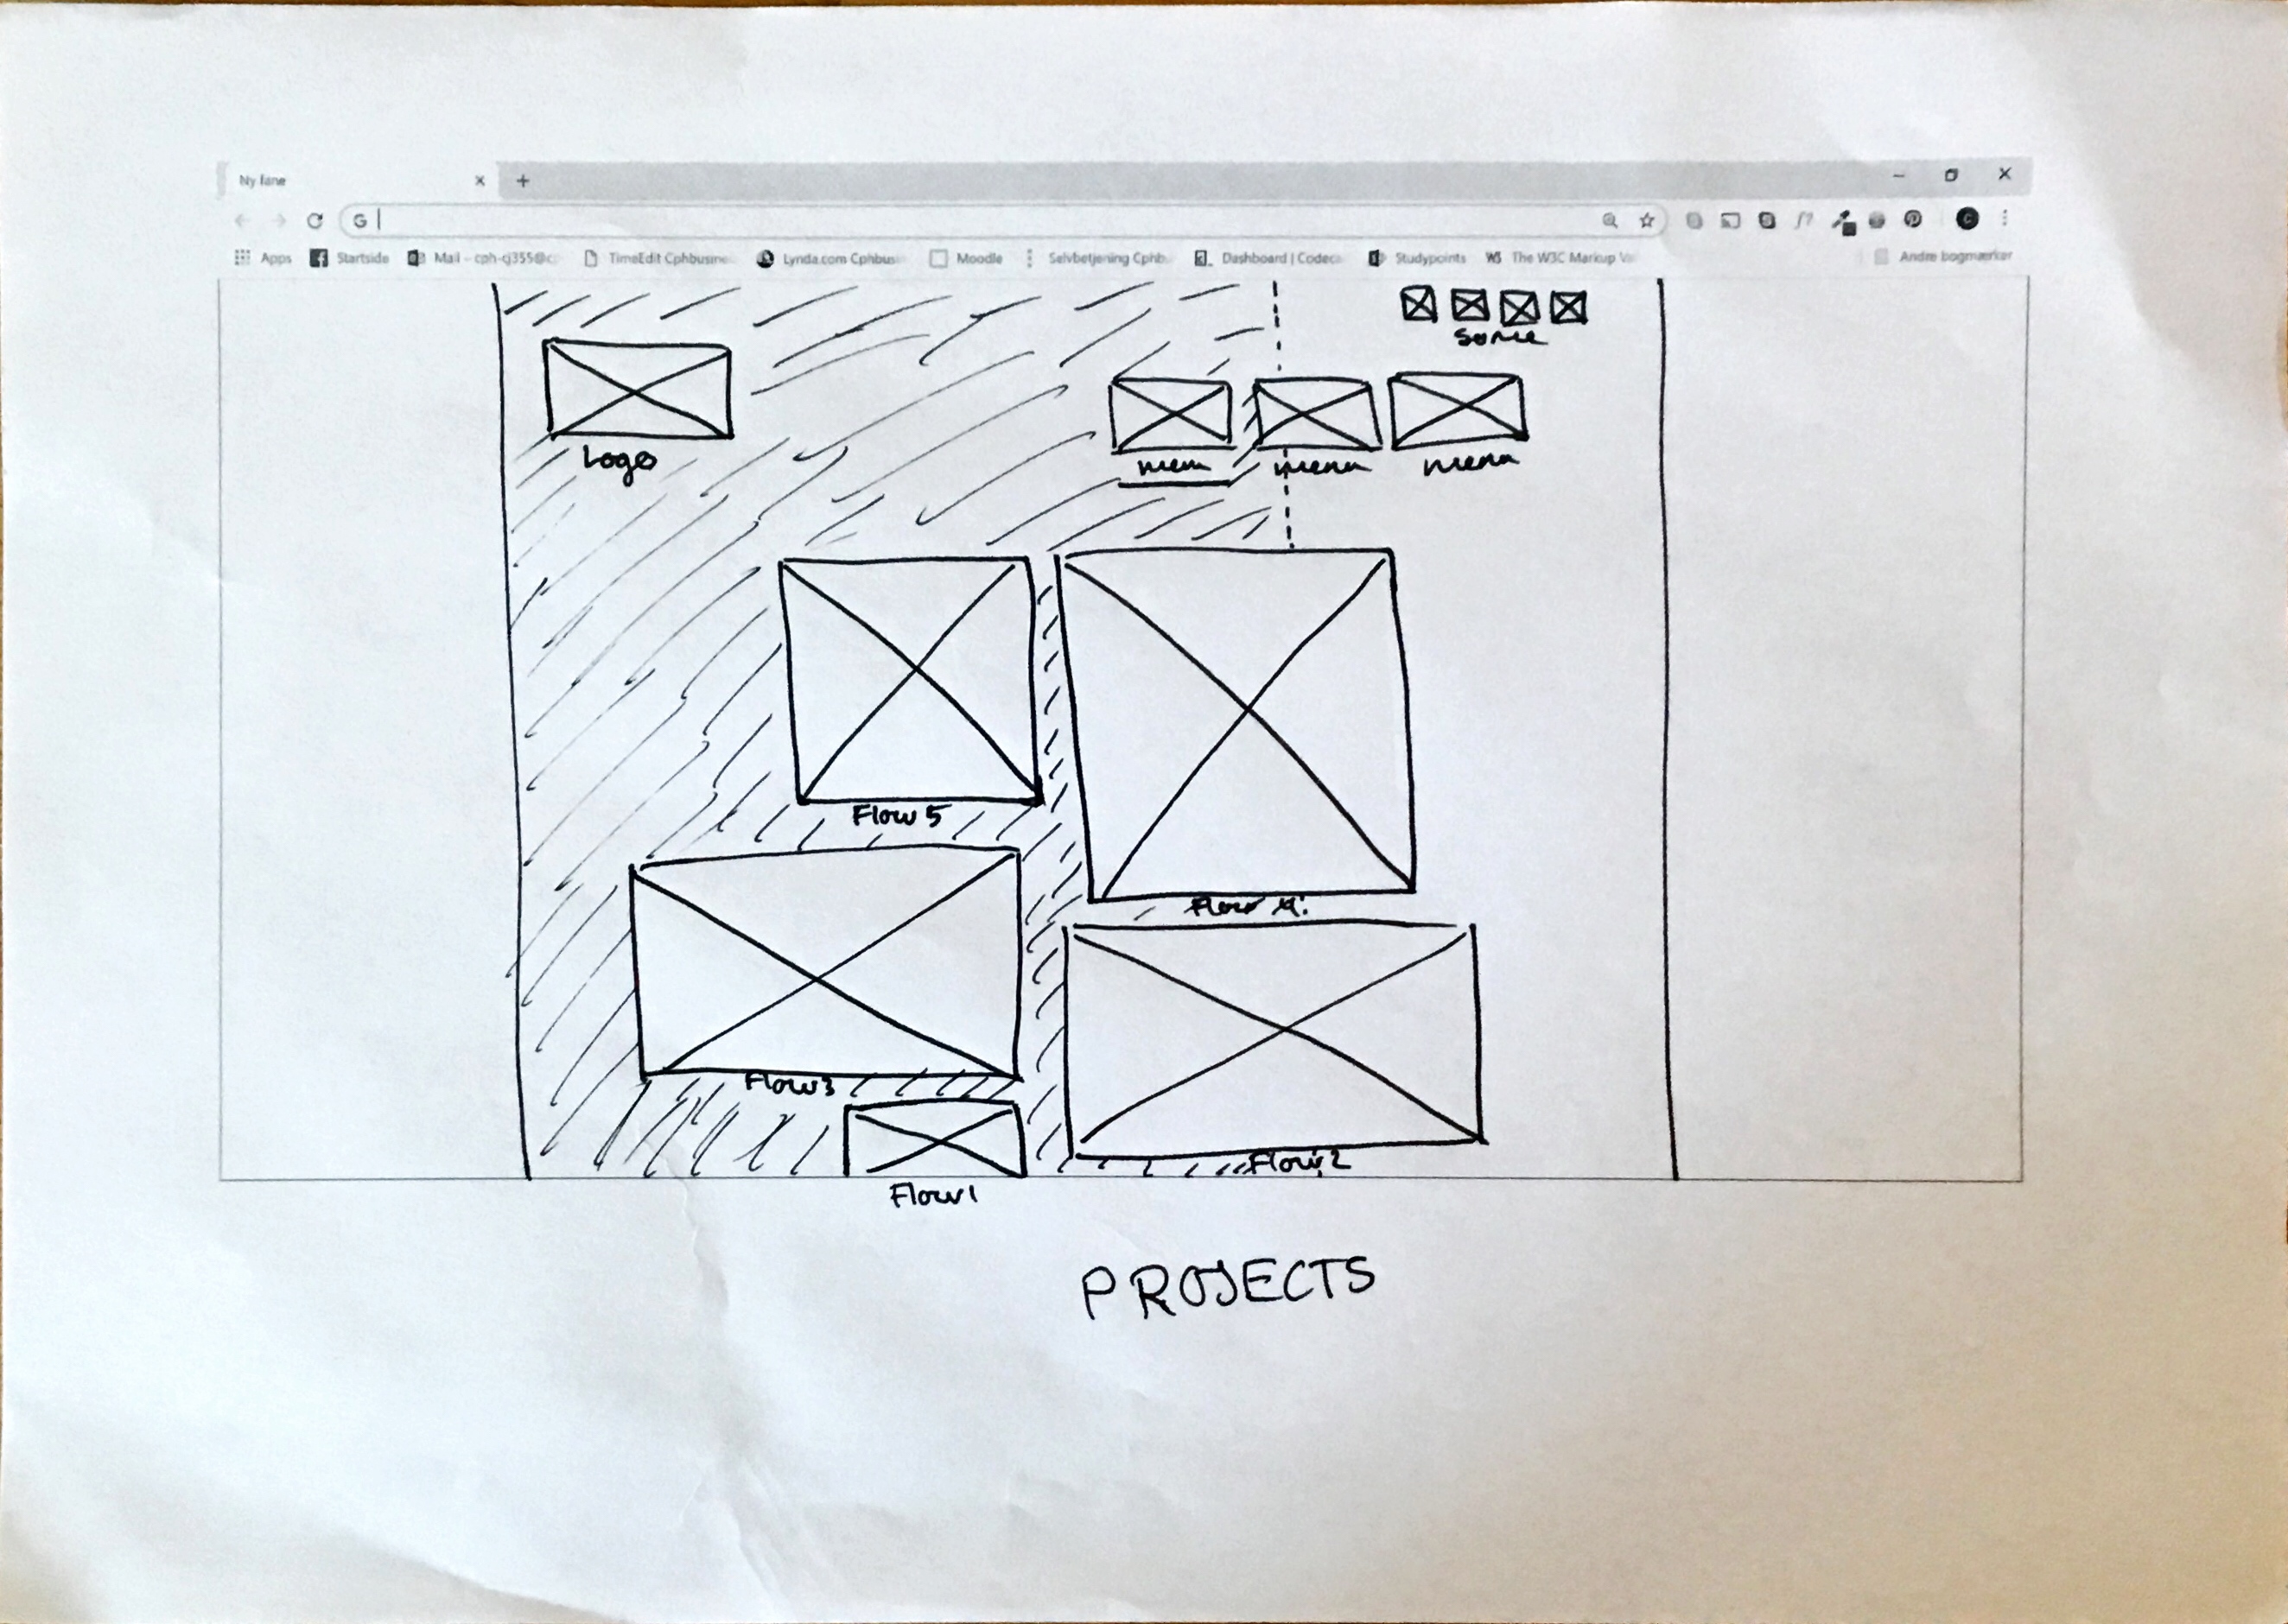 Ny fane
G
Apps Startside Mail - cph-cj355@c TimeEdit Cphbusine Lynda.com Cphbus Moodle Selvbetjening Cphb Dashboard | Codec Studypoints W3 The W3C Markup Va Andre bogmærker
SoMe
Logo
menu menu menu
Flow 5
Flow 4.
Flow 3
Flow 2
Flow 1
PROJECTS